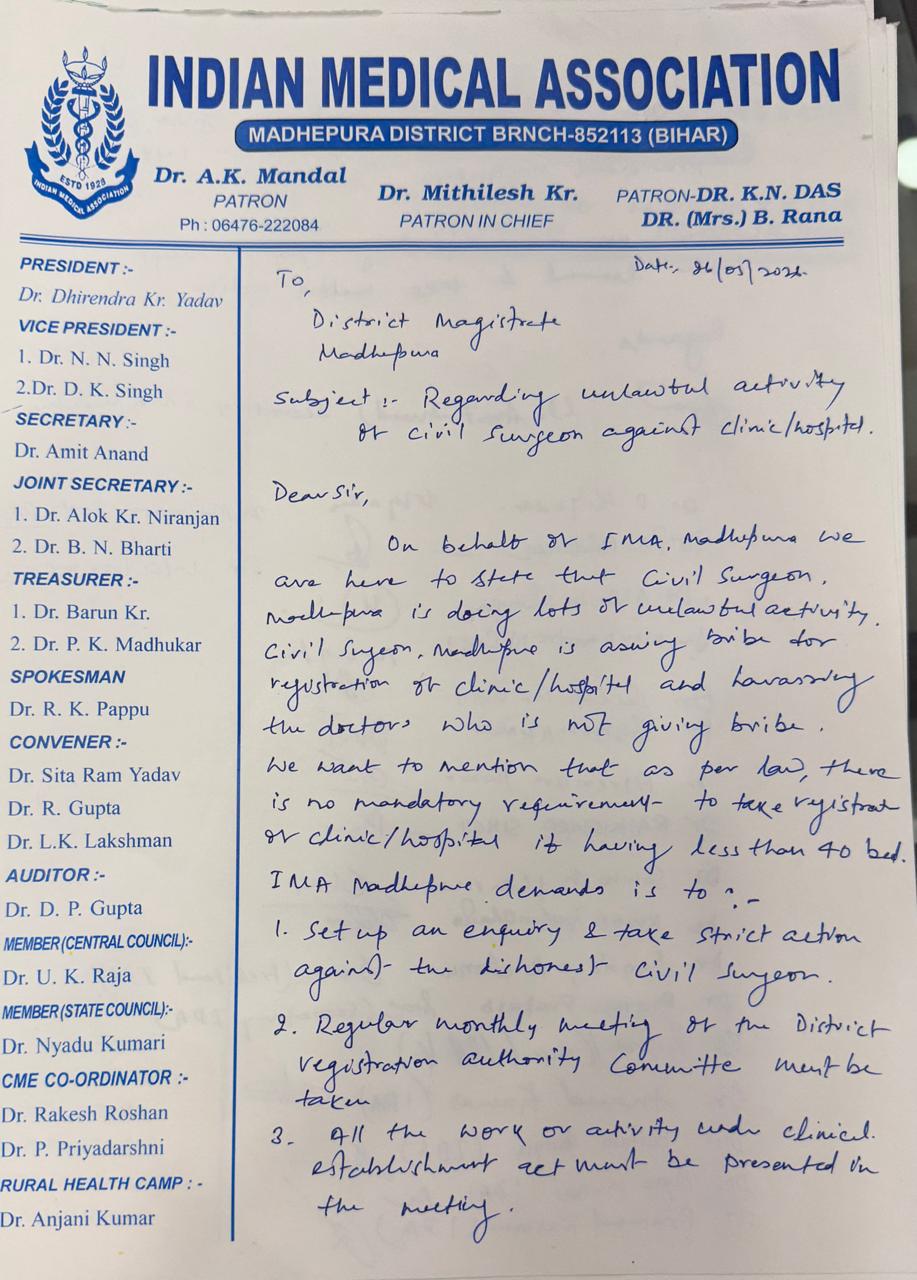 INDIAN MEDICAL ASSOCIATION
MADHEPURA DISTRICT BRNCH-852113 (BIHAR)
ESTD 1928
INDIAN MEDICAL ASSOCIATION
Dr. A.K. Mandal
PATRON
Ph : 06476-222084
Dr. Mithilesh Kr.
PATRON IN CHIEF
PATRON-DR. K.N. DAS
DR. (Mrs.) B. Rana
PRESIDENT :-
Dr. Dhirendra Kr. Yadav
VICE PRESIDENT :-
1. Dr. N. N. Singh
2.Dr. D. K. Singh
SECRETARY :-
Dr. Amit Anand
JOINT SECRETARY :-
1. Dr. Alok Kr. Niranjan
2. Dr. B. N. Bharti
TREASURER :-
1. Dr. Barun Kr.
2. Dr. P. K. Madhukar
SPOKESMAN
Dr. R. K. Pappu
CONVENER :-
Dr. Sita Ram Yadav
Dr. R. Gupta
Dr. L.K. Lakshman
AUDITOR :-
Dr. D. P. Gupta
MEMBER (CENTRAL COUNCIL):-
Dr. U. K. Raja
MEMBER (STATE COUNCIL):-
Dr. Nyadu Kumari
CME CO-ORDINATOR :-
Dr. Rakesh Roshan
Dr. P. Priyadarshni
RURAL HEALTH CAMP : -
Dr. Anjani Kumar
Date:-
To,
District Magistrate
Madhepura
Subject :- Regarding unlawful activity
of civil surgeon against clinic/hospital.
Dear Sir,
On behalf of IMA, Madhepura we
are here to state that Civil Surgeon,
Madhepura is doing lots of unlawful activity.
Civil Surgeon, Madhepura is asking bribe for
registration of clinic/hospital and harassing
the doctors who is not giving bribe.
We want to mention that as per law, there
is no mandatory requirement to take
of clinic/hospital if having less than 40 bed.
IMA Madhepura demands is to :-
1. Set up an enquiry & take strict action
against the dishonest Civil Surgeon.
2. Regular monthly meeting of the District
registration authority Committe must be
taken
3. All the work or activity under clinical
establishment act must be presented in
the meeting.